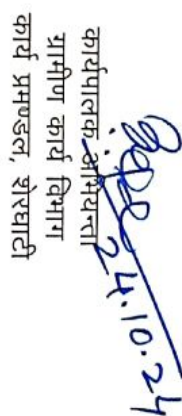 24.10.24
कार्यपालक अभियन्ता
ग्रामीण कार्य विभाग
कार्य प्रमण्डल, शेरघाटी